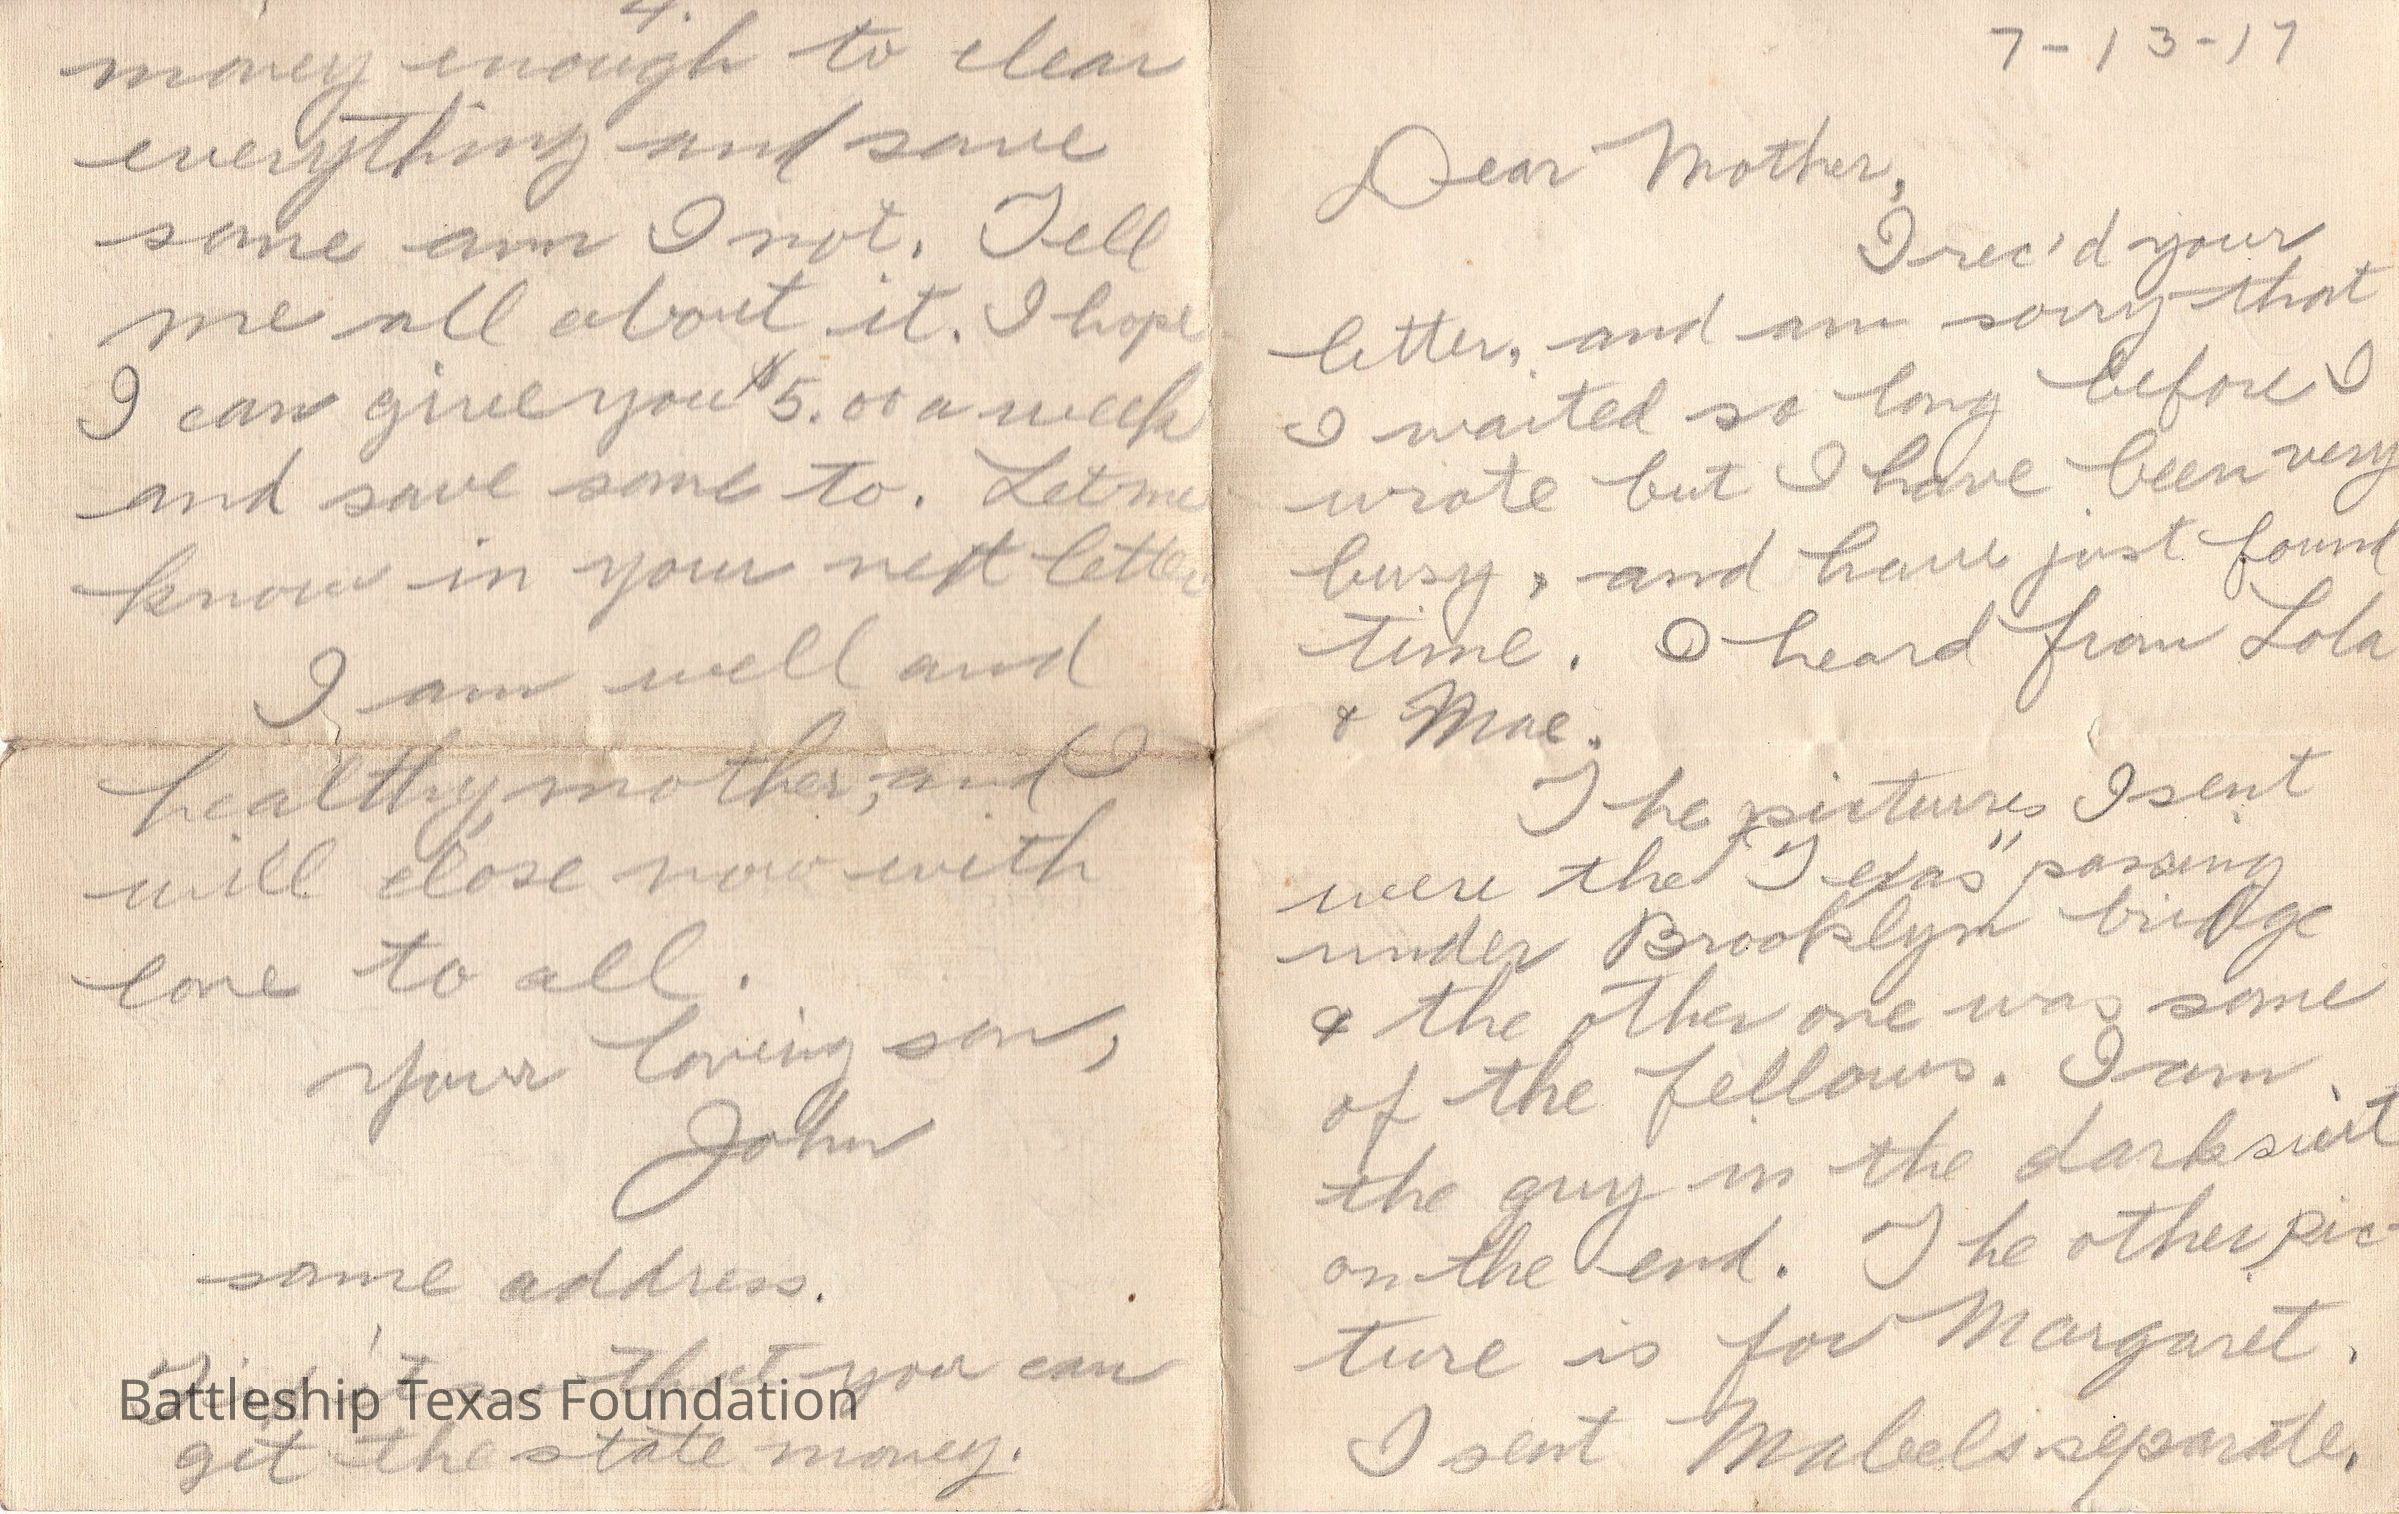 7-13-17
Dear Mother,
I rec'd your
letter, and am sorry that
I waited so long before I
wrote but I have been very
busy, and have just found
time. I heard from Lola
& Mae.
The pictures I sent
were the "Texas" passing
under Brooklyn bridge
& the other one was some
of the fellows. I am
the guy in the dark suit
on the end. The other pic-
ture is for Margaret.
I sent Mabels separate.
4.
money enough to clear
everything and save
some am I not. Tell
me all about it. I hope
I can give you $5.00 a week
and save some to. Let me
know in your next letter
I am well and
healthy, mother, and I
will close now with
love to all.
Your loving son,
John
same address.
that you can
get the state money.
Battleship Texas Foundation